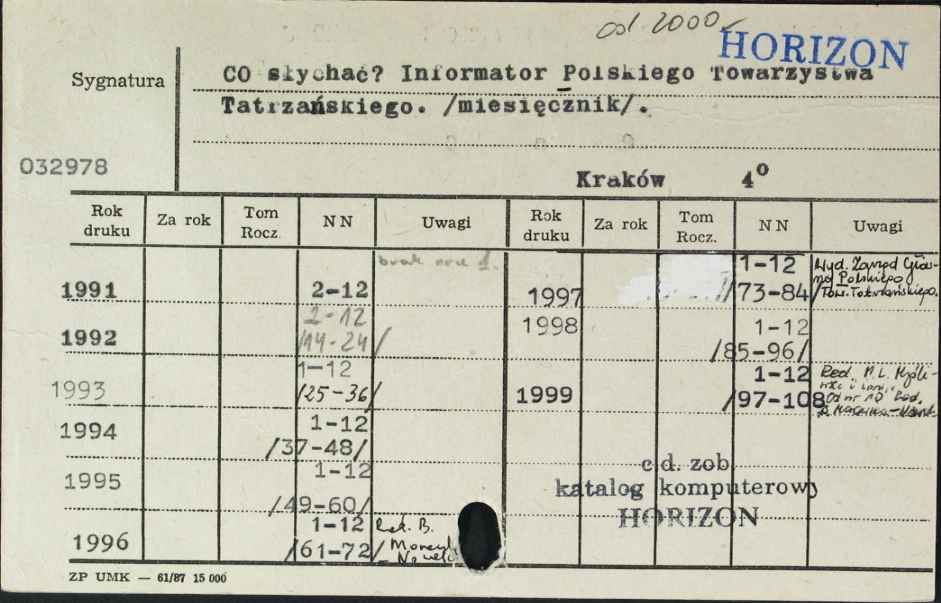 od 2000
HORIZON
Sygnatura
CO słychać? Informator Polskiego Towarzystwa
Tatrzańskiego. /miesięcznik/.
032978
Kraków 4°
Rok druku Za rok Tom Rocz. NN Uwagi Rok druku Za rok Tom Rocz. NN Uwagi
brak nru 1.
1991 2-12
1992 2-12
/14-24/
1993 1-12
/25-36/
1994 1-12
/37-48/
1995 1-12
/49-60/
1996 1-12 Red. B.
/61-72/
1997 1-12 Wyd. Zarząd
/73-84/ Polskiego
Tow. Tatrzańskiego.
1998 1-12
/85-96/
1999 1-12 Red.
/97-108 Od nr 10 Red.
c.d. zob.
katalog komputerowy
HORIZON
ZP UMK — 61/87 15 000